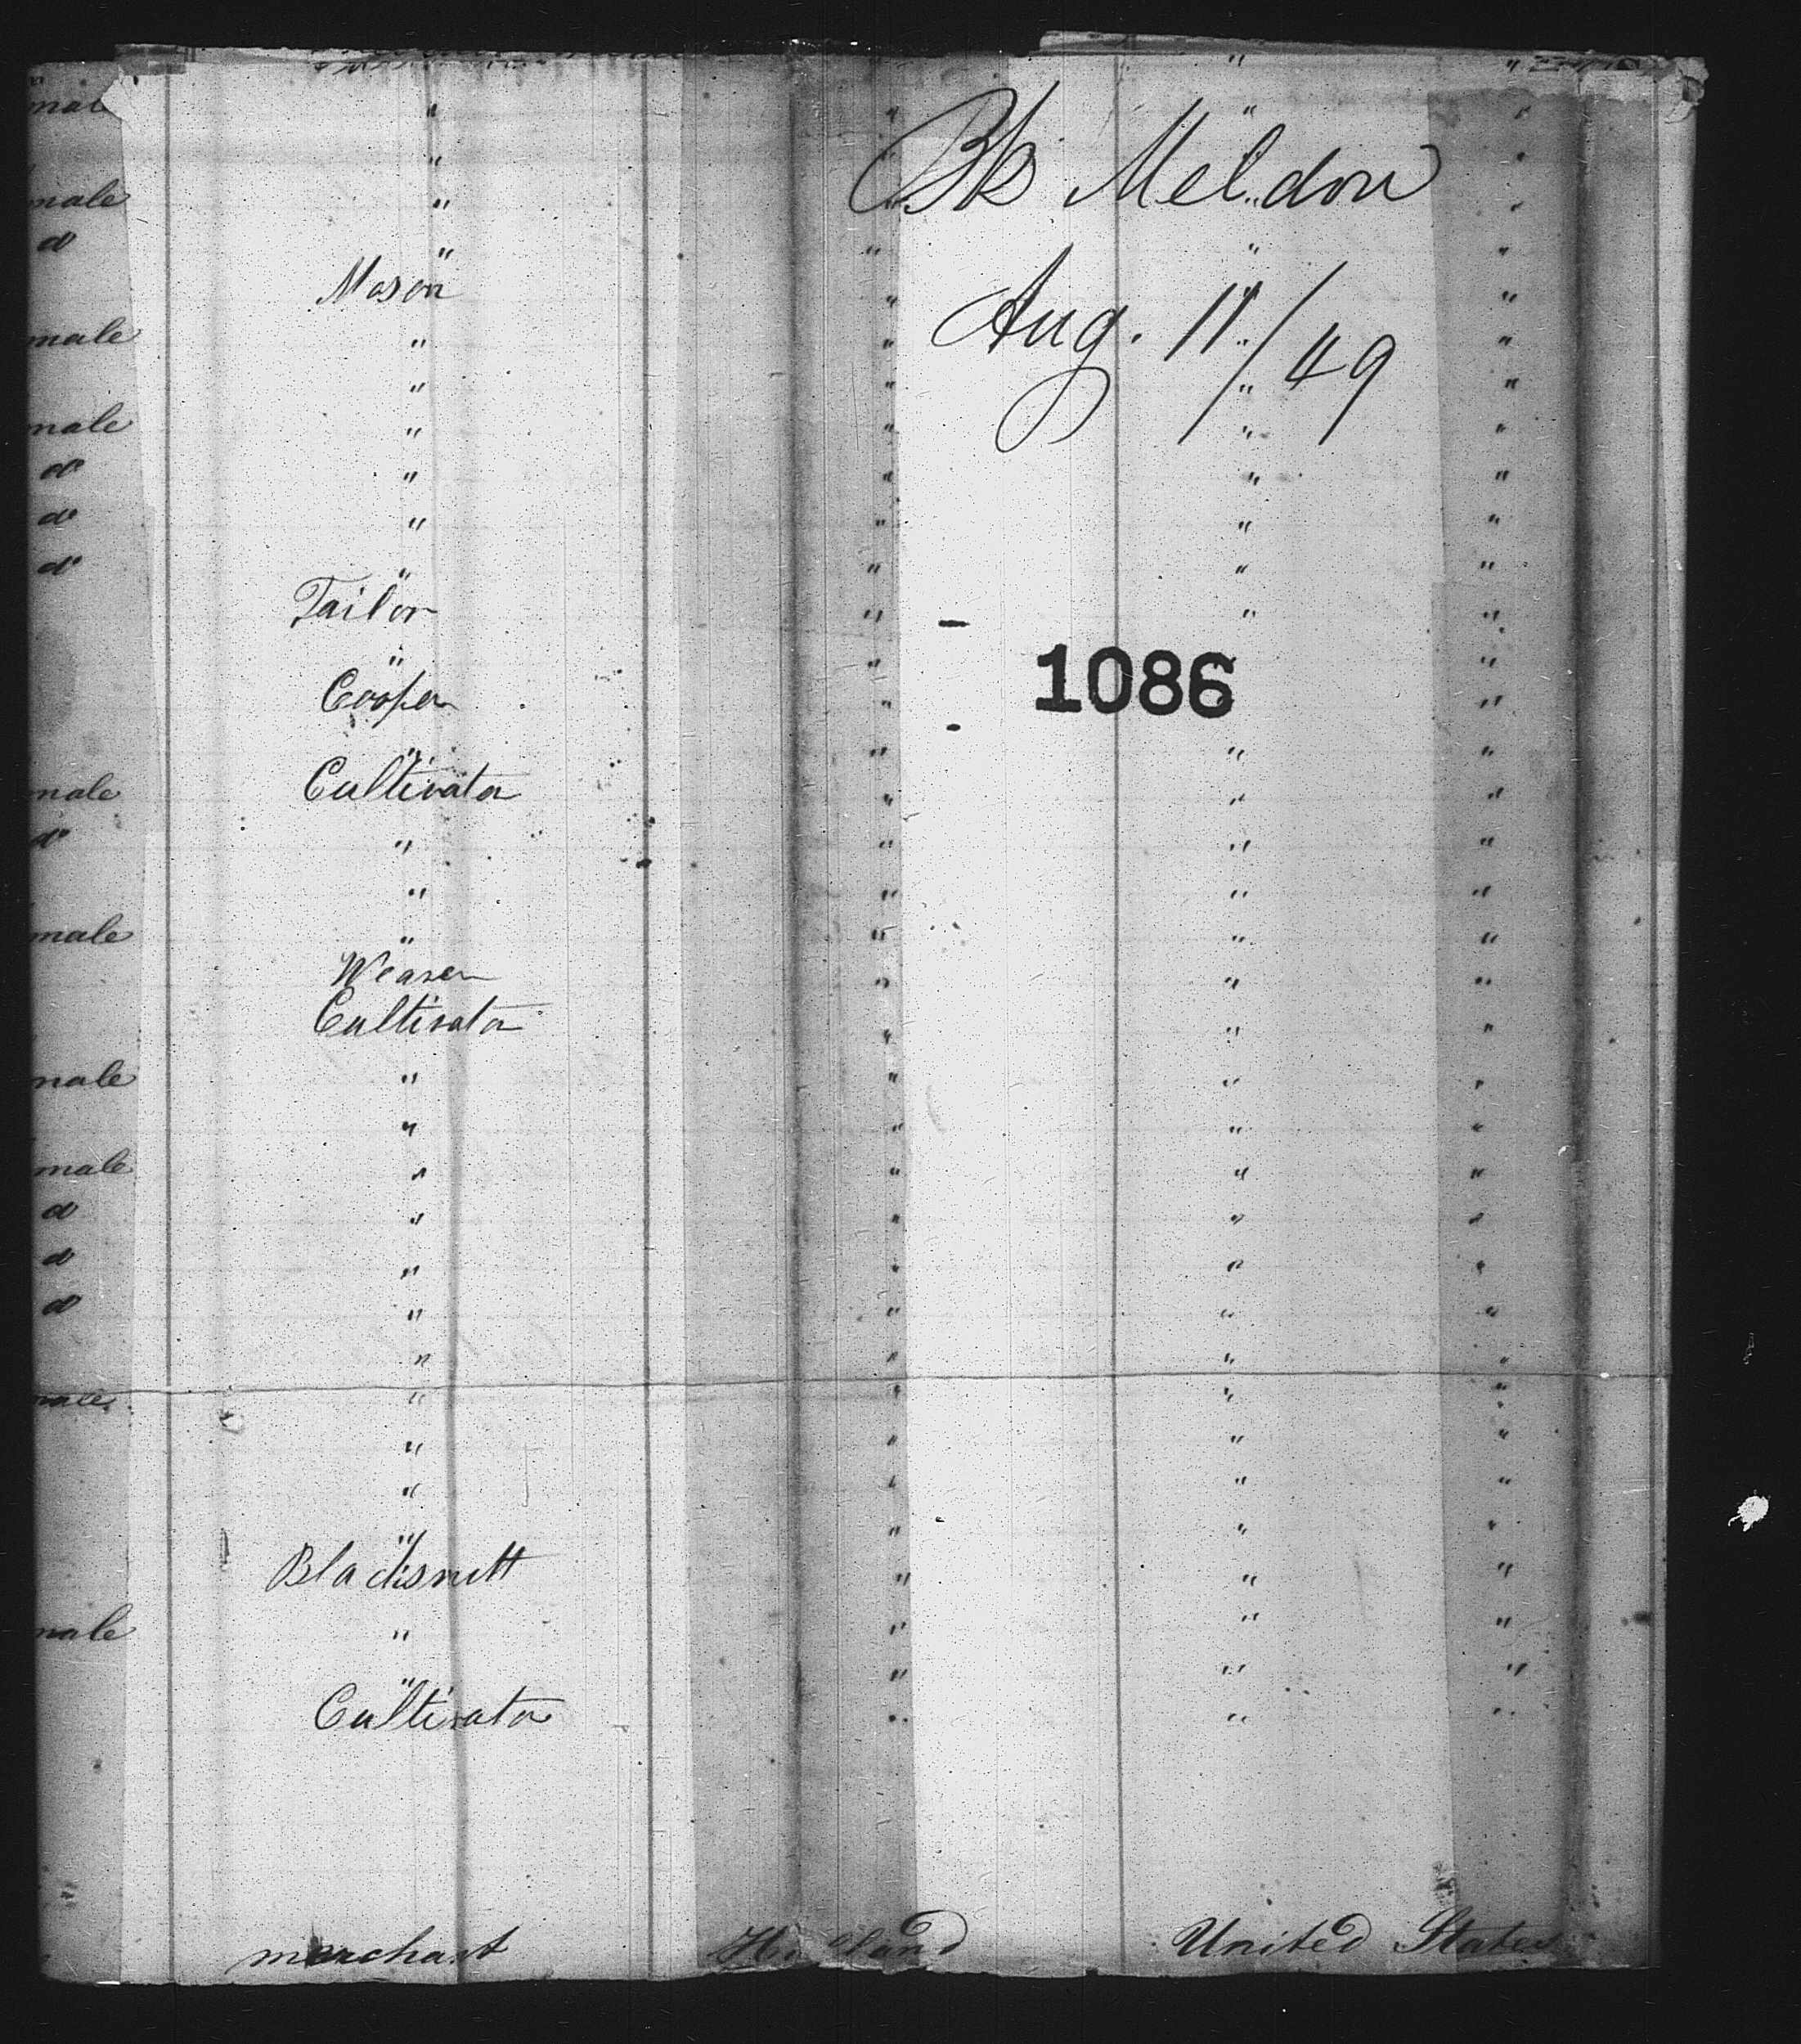 male " " " "
" " "
male " Bk Meldon "
do " " " "
Mason " Aug. 11/49 "
male " " "
" " " "
male " " " "
do " " " "
do " " " "
do " " " "
Tailor " " "
" " "
Cooper " 1086 "
" " " "
male Cultivator " " "
do " " " "
" " " "
male " " " "
Weaver " " "
Cultivator " " "
male " " " "
" " " "
male " " " "
do " " " "
do " " " "
do " " " "
" " " "
male " " " "
" " " "
" " " "
" " " "
Blacksmith " " "
male " " " "
" " " "
Cultivator " " "
merchant Holland United States